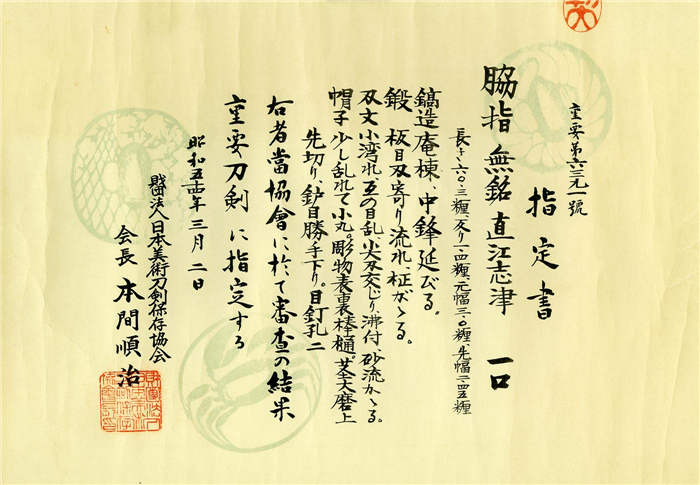 重要第六三九一號
指定書
脇指 無銘 直江志津 一口
長さ六〇・三糎、反り一・四糎、元幅三・〇糎、先幅二・四五糎
鎬造、庵棟、中鋒延びる。
鍛 板目刄寄り流れ、柾がゝる。
刄文 小湾れ、互の目乱、尖刄交じり、沸付、砂流かゝる。
帽子 少し乱れて小丸。彫物表裏棒樋。茎大磨上
先切り、鑢目勝手下り。目釘孔二
右者當協會に於て審査の結果
重要刀剣に指定する
昭和五十四年三月二日
財団法人日本美術刀剣保存協会
会長 本間順治